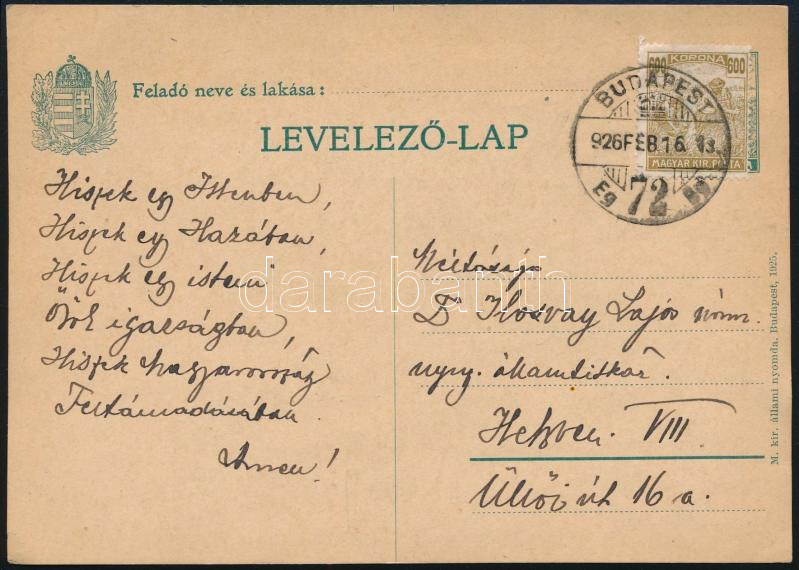 Feladó neve és lakása:
LEVELEZŐ-LAP
600 KORONA 600
MAGYAR KIR. POSTA
BUDAPEST
926 FEB. 16. 13.
72
Hiszek egy Istenben,
Hiszek egy Hazában,
Hiszek egy isteni
Örök igazságban,
Hiszek Magyarország
Feltámadásában
Amen!
Méltóságos
Dr Ilosvay Lajos
nyug. államtitkár
Helyben. VIII
Üllői út 16 a.
M. kir. állami nyomda. Budapest, 1925.
darabanth